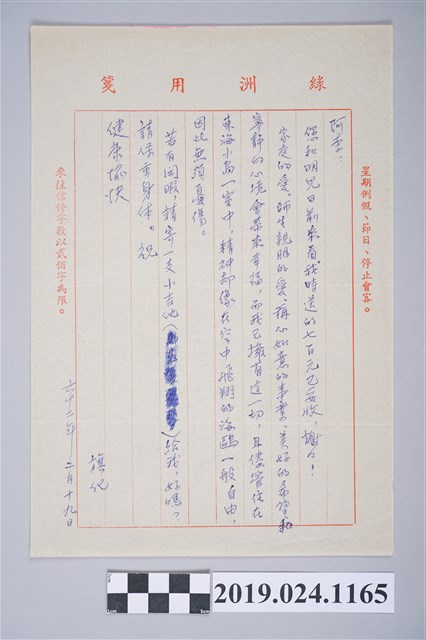 綠洲用箋
星期例假、節日、停止會客。
阿李：
您和明兄日前來看我時送的七百元已妥收，謝々！
家庭的愛、師生親朋的愛、稱心如意的事業、美好的希望和
寧靜的心境會帶來幸福，而我已擁有這一切，且儘管住在
東海小島一室中，精神却像在空中飛翔的海鷗一般自由，
因此無須憂傷。
若有閑暇，請寄一支小吉他（）給我，好嗎？
請保重身体。祝
健康愉快
旗化
六十二年二月十九日
來往信件字數以貳佰字為限。
2019.024.1165